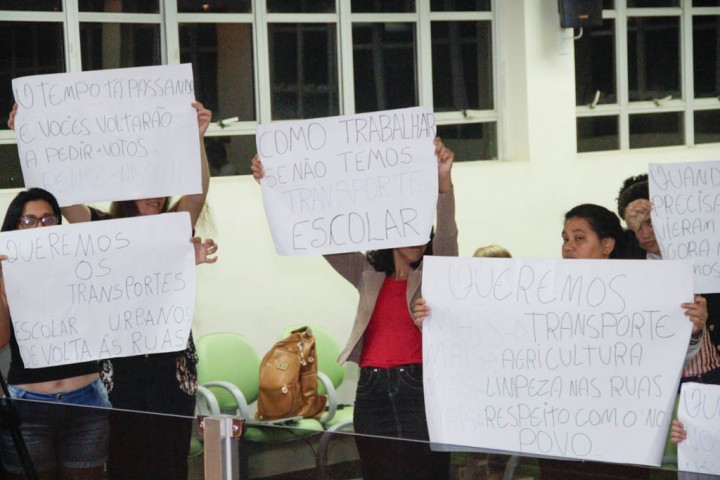 O TEMPO TÁ PASSANDO
E VOCÊS VOLTARÃO
A PEDIR-VOTOS
QUEREMOS
OS
TRANSPORTES
ESCOLAR URBANOS
DE VOLTA ÁS RUAS
COMO TRABALHAR
SE NÃO TEMOS
TRANSPORTE
ESCOLAR
QUEREMOS
MAIS TRANSPORTE
MAIS AGRICULTURA
MAIS LIMPEZA NAS RUAS
RESPEITO COM O NO
POVO
QUAND
PRECISA
VIERAM
AGORA